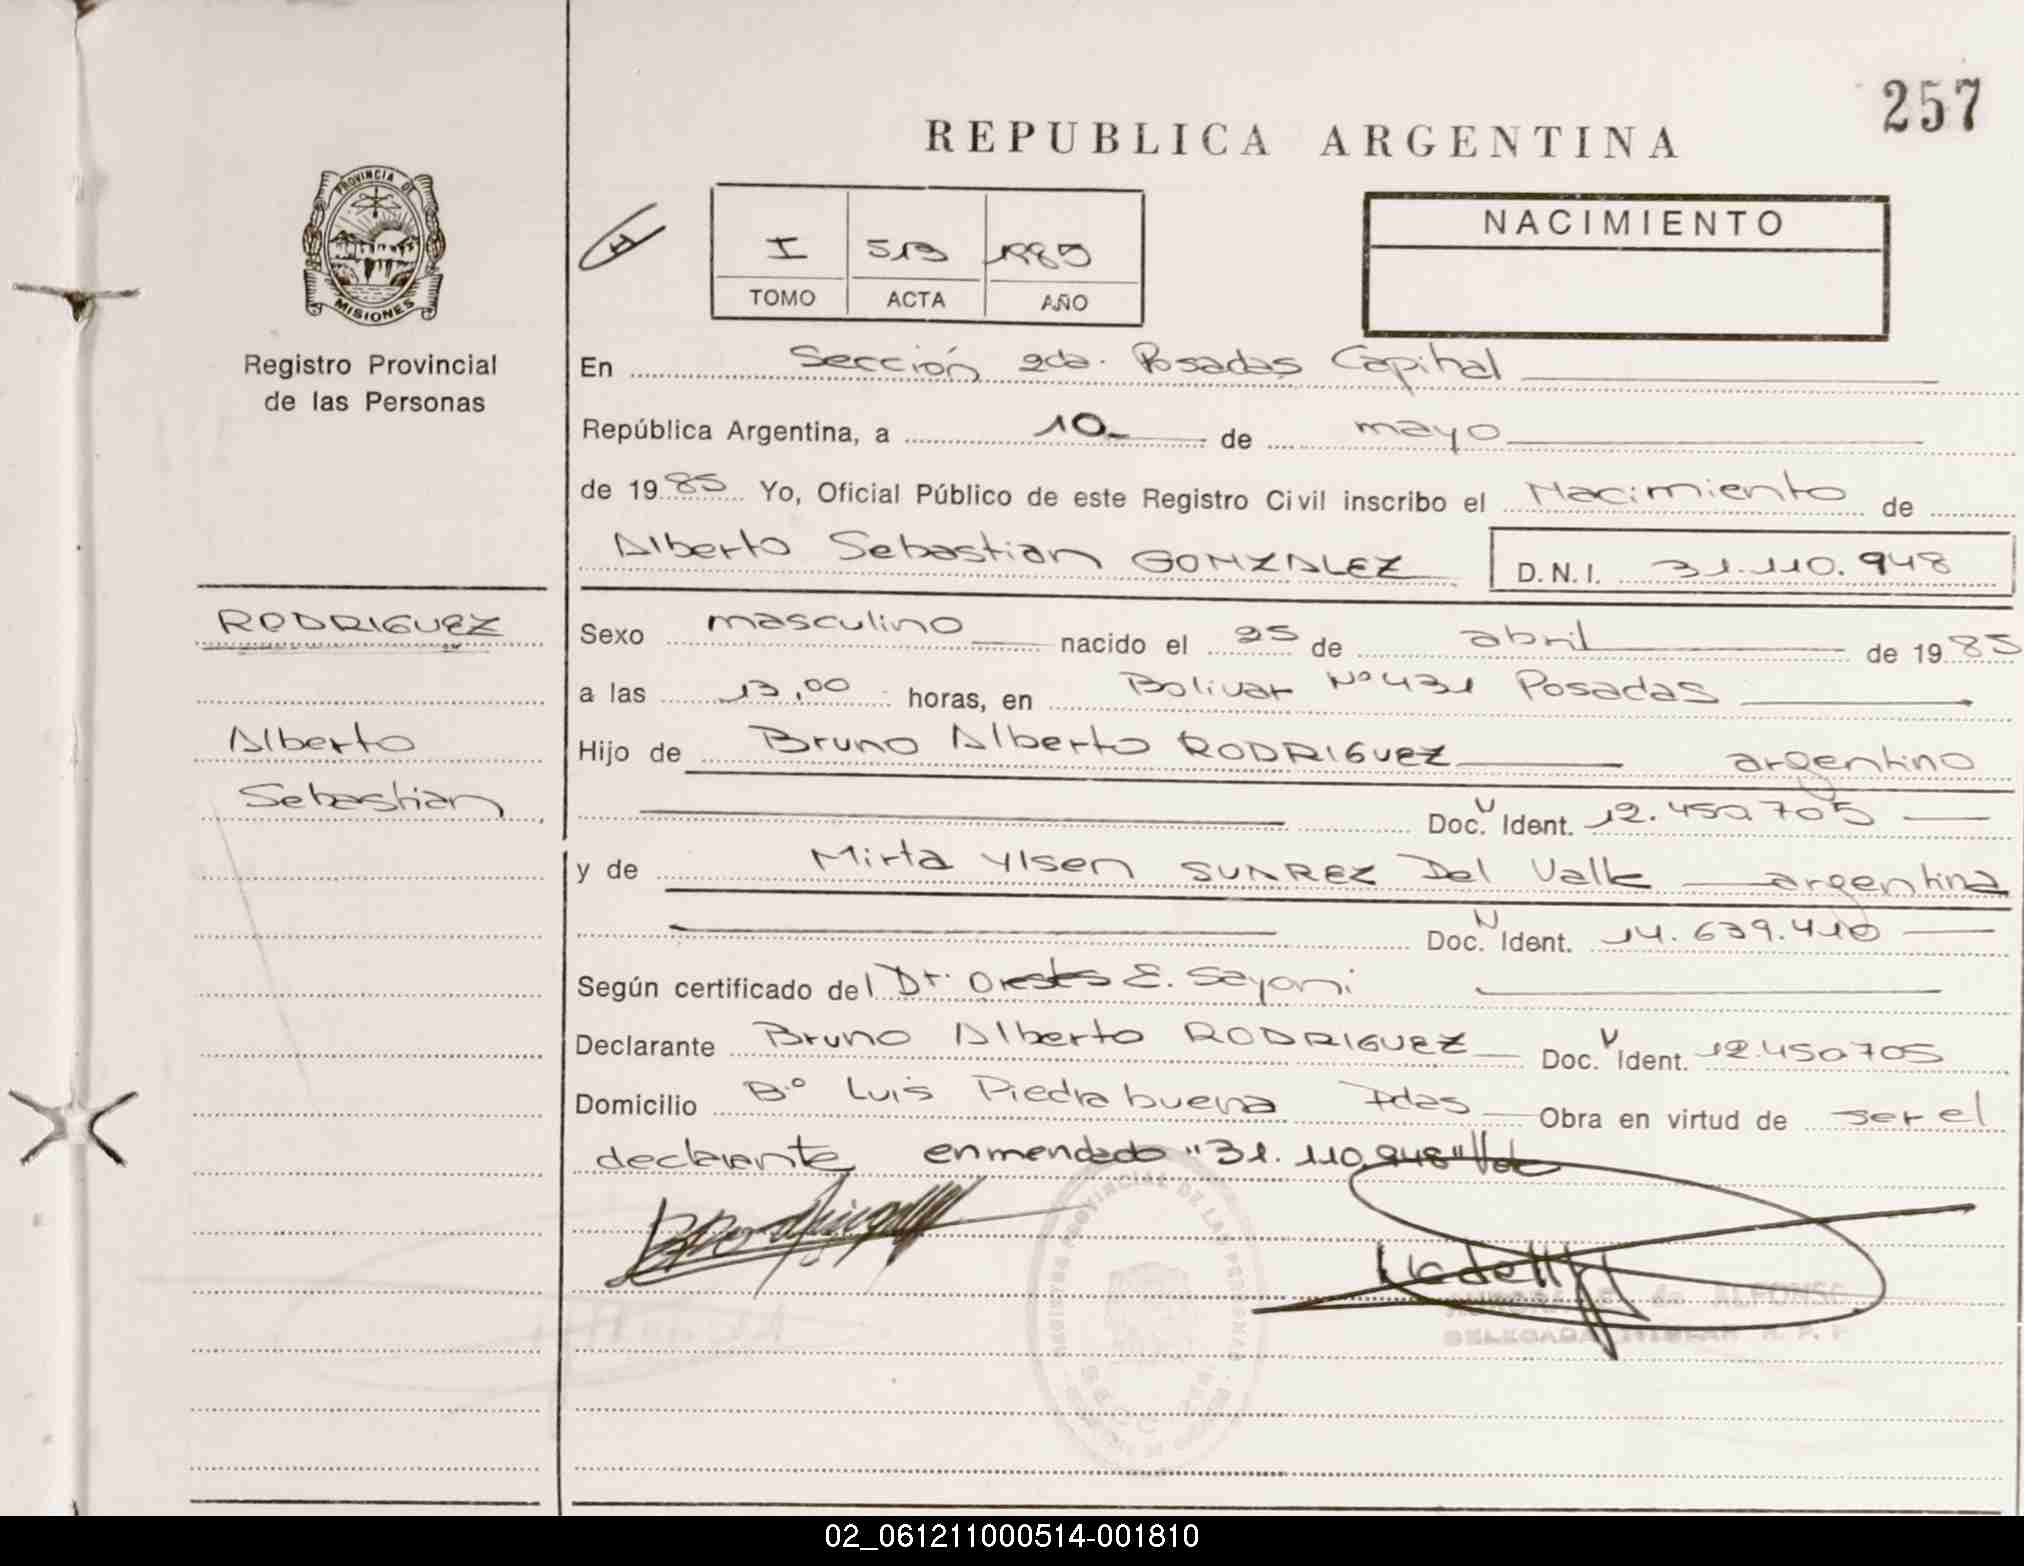 257
REPUBLICA ARGENTINA
PROVINCIA DE
MISIONES
Registro Provincial
de las Personas
I 513 1985
TOMO ACTA AÑO
NACIMIENTO
En Sección 2da. Posadas Capital
República Argentina, a 10 de mayo
de 1985 Yo, Oficial Público de este Registro Civil inscribo el Nacimiento de
Alberto Sebastian GONZALEZ D.N.I. 31.110.948
RODRIGUEZ
Alberto
Sebastian
Sexo masculino nacido el 25 de abril de 1985
a las 13,00 horas, en Bolivar Nº 431 Posadas
Hijo de Bruno Alberto RODRIGUEZ argentino
Doc. Ident. 12.450.705
y de Mirta Ylsen SUAREZ Del Valle argentina
Doc. Ident. 14.639.410
Según certificado del Dr. Orestes E. Sayoni
Declarante Bruno Alberto RODRIGUEZ Doc. Ident. 12.450705
Domicilio Bº Luis Piedrabuena Pdas Obra en virtud de ser el
declarante enmendado "31.110.948" Vale
REGISTRO PROVINCIAL DE LAS PERSONAS
de ALFONSO
DELEGADA TITULAR R. P. P.
02_061211000514-001810